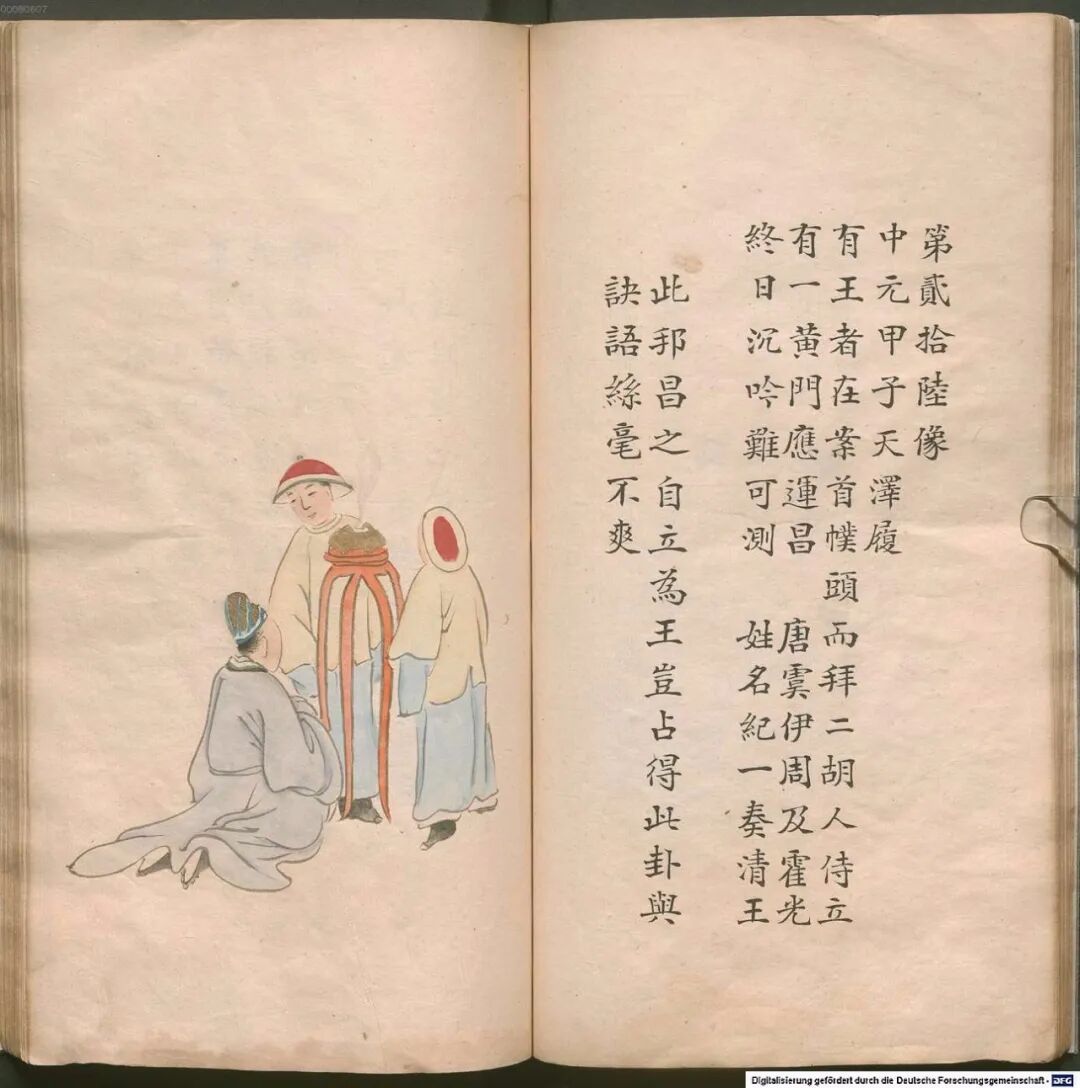 00060607
第貳拾陸像
中元甲子天澤履
有王者在案首幞頭而拜二胡人侍立
有一黃門應運昌 唐虞伊周及霍光
終日沉吟難可測 姓名紀一奏清王
此邦昌之自立為王豈占得此卦與
訣語絲毫不爽
Digitalisierung gefördert durch die Deutsche Forschungsgemeinschaft - DFG